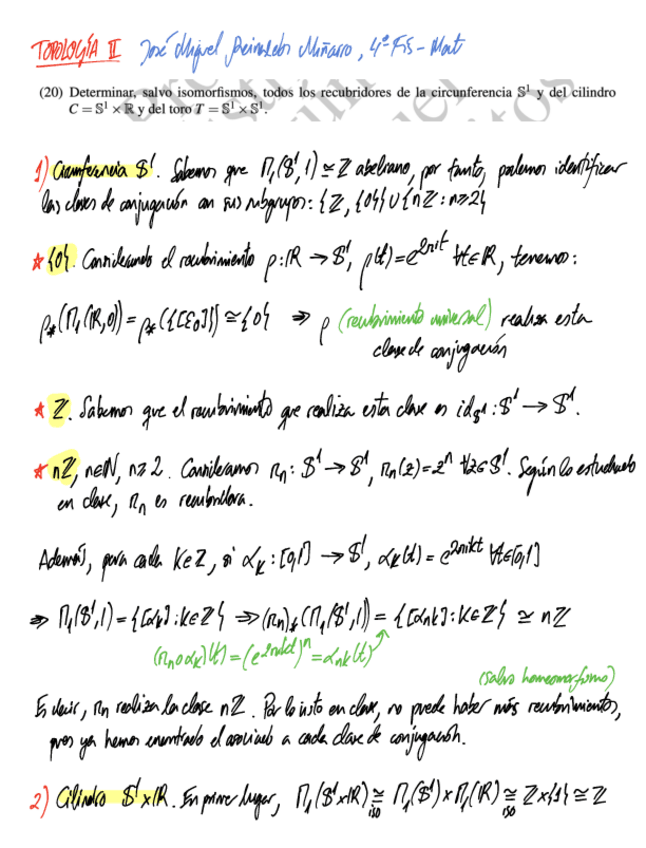 TOPOLOGÍA II José Miguel Reinaldos Miñarro, 4º Fis-Mat
(20) Determinar, salvo isomorfismos, todos los recubridores de la circunferencia 𝕊¹ y del cilindro
C = 𝕊¹ × ℝ y del toro T = 𝕊¹ × 𝕊¹.
1) Circunferencia 𝕊¹. Sabemos que Π₁(𝕊¹,1) ≅ ℤ abeliano, por tanto, podemos identificar
las clases de conjugación con sus subgrupos: {ℤ, {0}} ∪ {nℤ : n≥2}
★ {0}. Considerando el recubrimiento p: ℝ → 𝕊¹, p(t) = e^{2πit} ∀t∈ℝ, tenemos:
p_*(Π₁(ℝ,0)) = p_*({[ε₀]}) ≅ {0} ⇒ p (recubrimiento universal) realiza esta
clase de conjugación
★ ℤ. Sabemos que el recubrimiento que realiza esta clase es id_{𝕊¹} : 𝕊¹ → 𝕊¹.
★ nℤ, n∈ℕ, n≥2. Consideramos p_n : 𝕊¹ → 𝕊¹, p_n(z) = zⁿ ∀z∈𝕊¹. Según lo estudiado
en clase, p_n es recubridora.
Además, para cada k∈ℤ, si α_k : [0,1] → 𝕊¹, α_k(t) = e^{2πikt} ∀t∈[0,1]
⇒ Π₁(𝕊¹,1) = {[α_k] : k∈ℤ} ⇒ (p_n)_*(Π₁(𝕊¹,1)) = {[α_{nk}] : k∈ℤ} ≅ nℤ
(p_n∘α_k)(t) = (e^{2πikt})ⁿ = α_{nk}(t)
(salvo homeomorfismo)
Es decir, p_n realiza la clase nℤ. Por lo visto en clase, no puede haber más recubrimientos,
pues ya hemos encontrado el asociado a cada clase de conjugación.
2) Cilindro 𝕊¹×ℝ. En primer lugar, Π₁(𝕊¹×ℝ) ≅_{iso} Π₁(𝕊¹)×Π₁(ℝ) ≅_{iso} ℤ×{1} ≅ ℤ